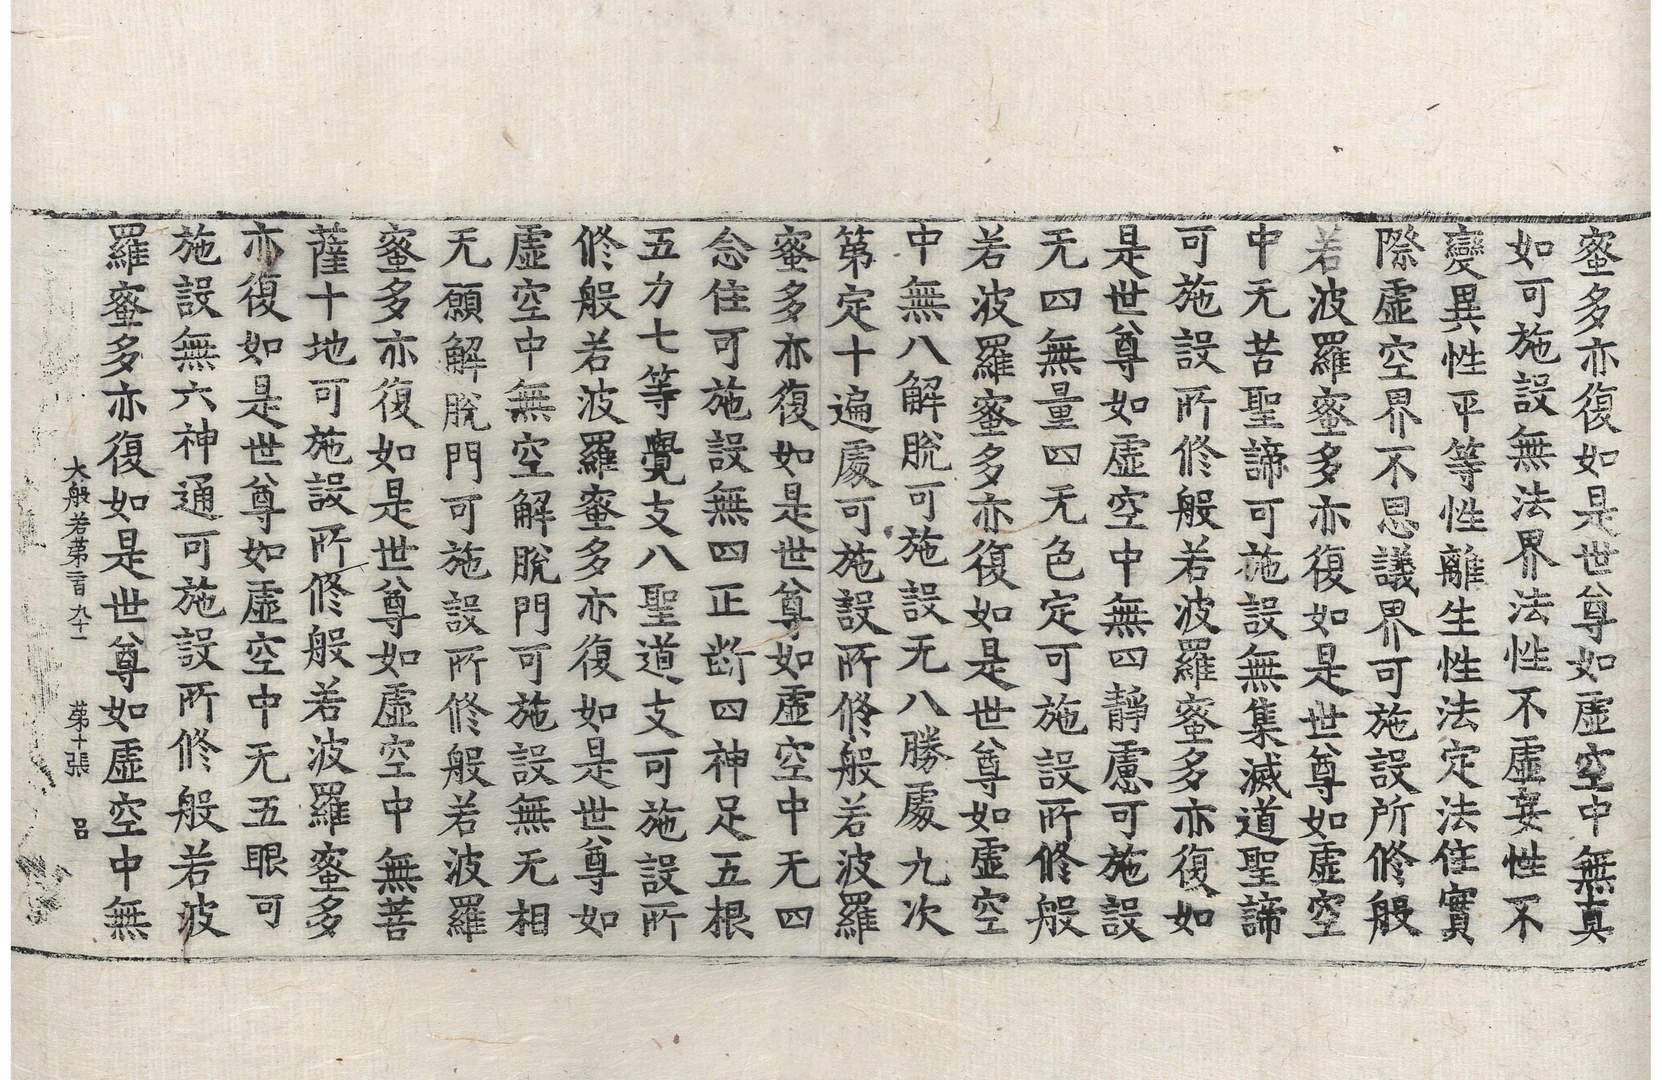 蜜多亦復如是世尊如虛空中無真
如可施設無法界法性不虛妄性不
變異性平等性離生性法定法住實
際虛空界不思議界可施設所修般
若波羅蜜多亦復如是世尊如虛空
中无苦聖諦可施設無集滅道聖諦
可施設所修般若波羅蜜多亦復如
是世尊如虛空中無四靜慮可施設
无四無量四无色定可施設所修般
若波羅蜜多亦復如是世尊如虛空
中無八解脫可施設无八勝處九次
第定十遍處可施設所修般若波羅
蜜多亦復如是世尊如虛空中无四
念住可施設無四正斷四神足五根
五力七等覺支八聖道支可施設所
修般若波羅蜜多亦復如是世尊如
虛空中無空解脫門可施設無无相
无願解脫門可施設所修般若波羅
蜜多亦復如是世尊如虛空中無菩
薩十地可施設所修般若波羅蜜多
亦復如是世尊如虛空中无五眼可
施設無六神通可施設所修般若波
羅蜜多亦復如是世尊如虛空中無
大般若第二百九十一 第十張 呂